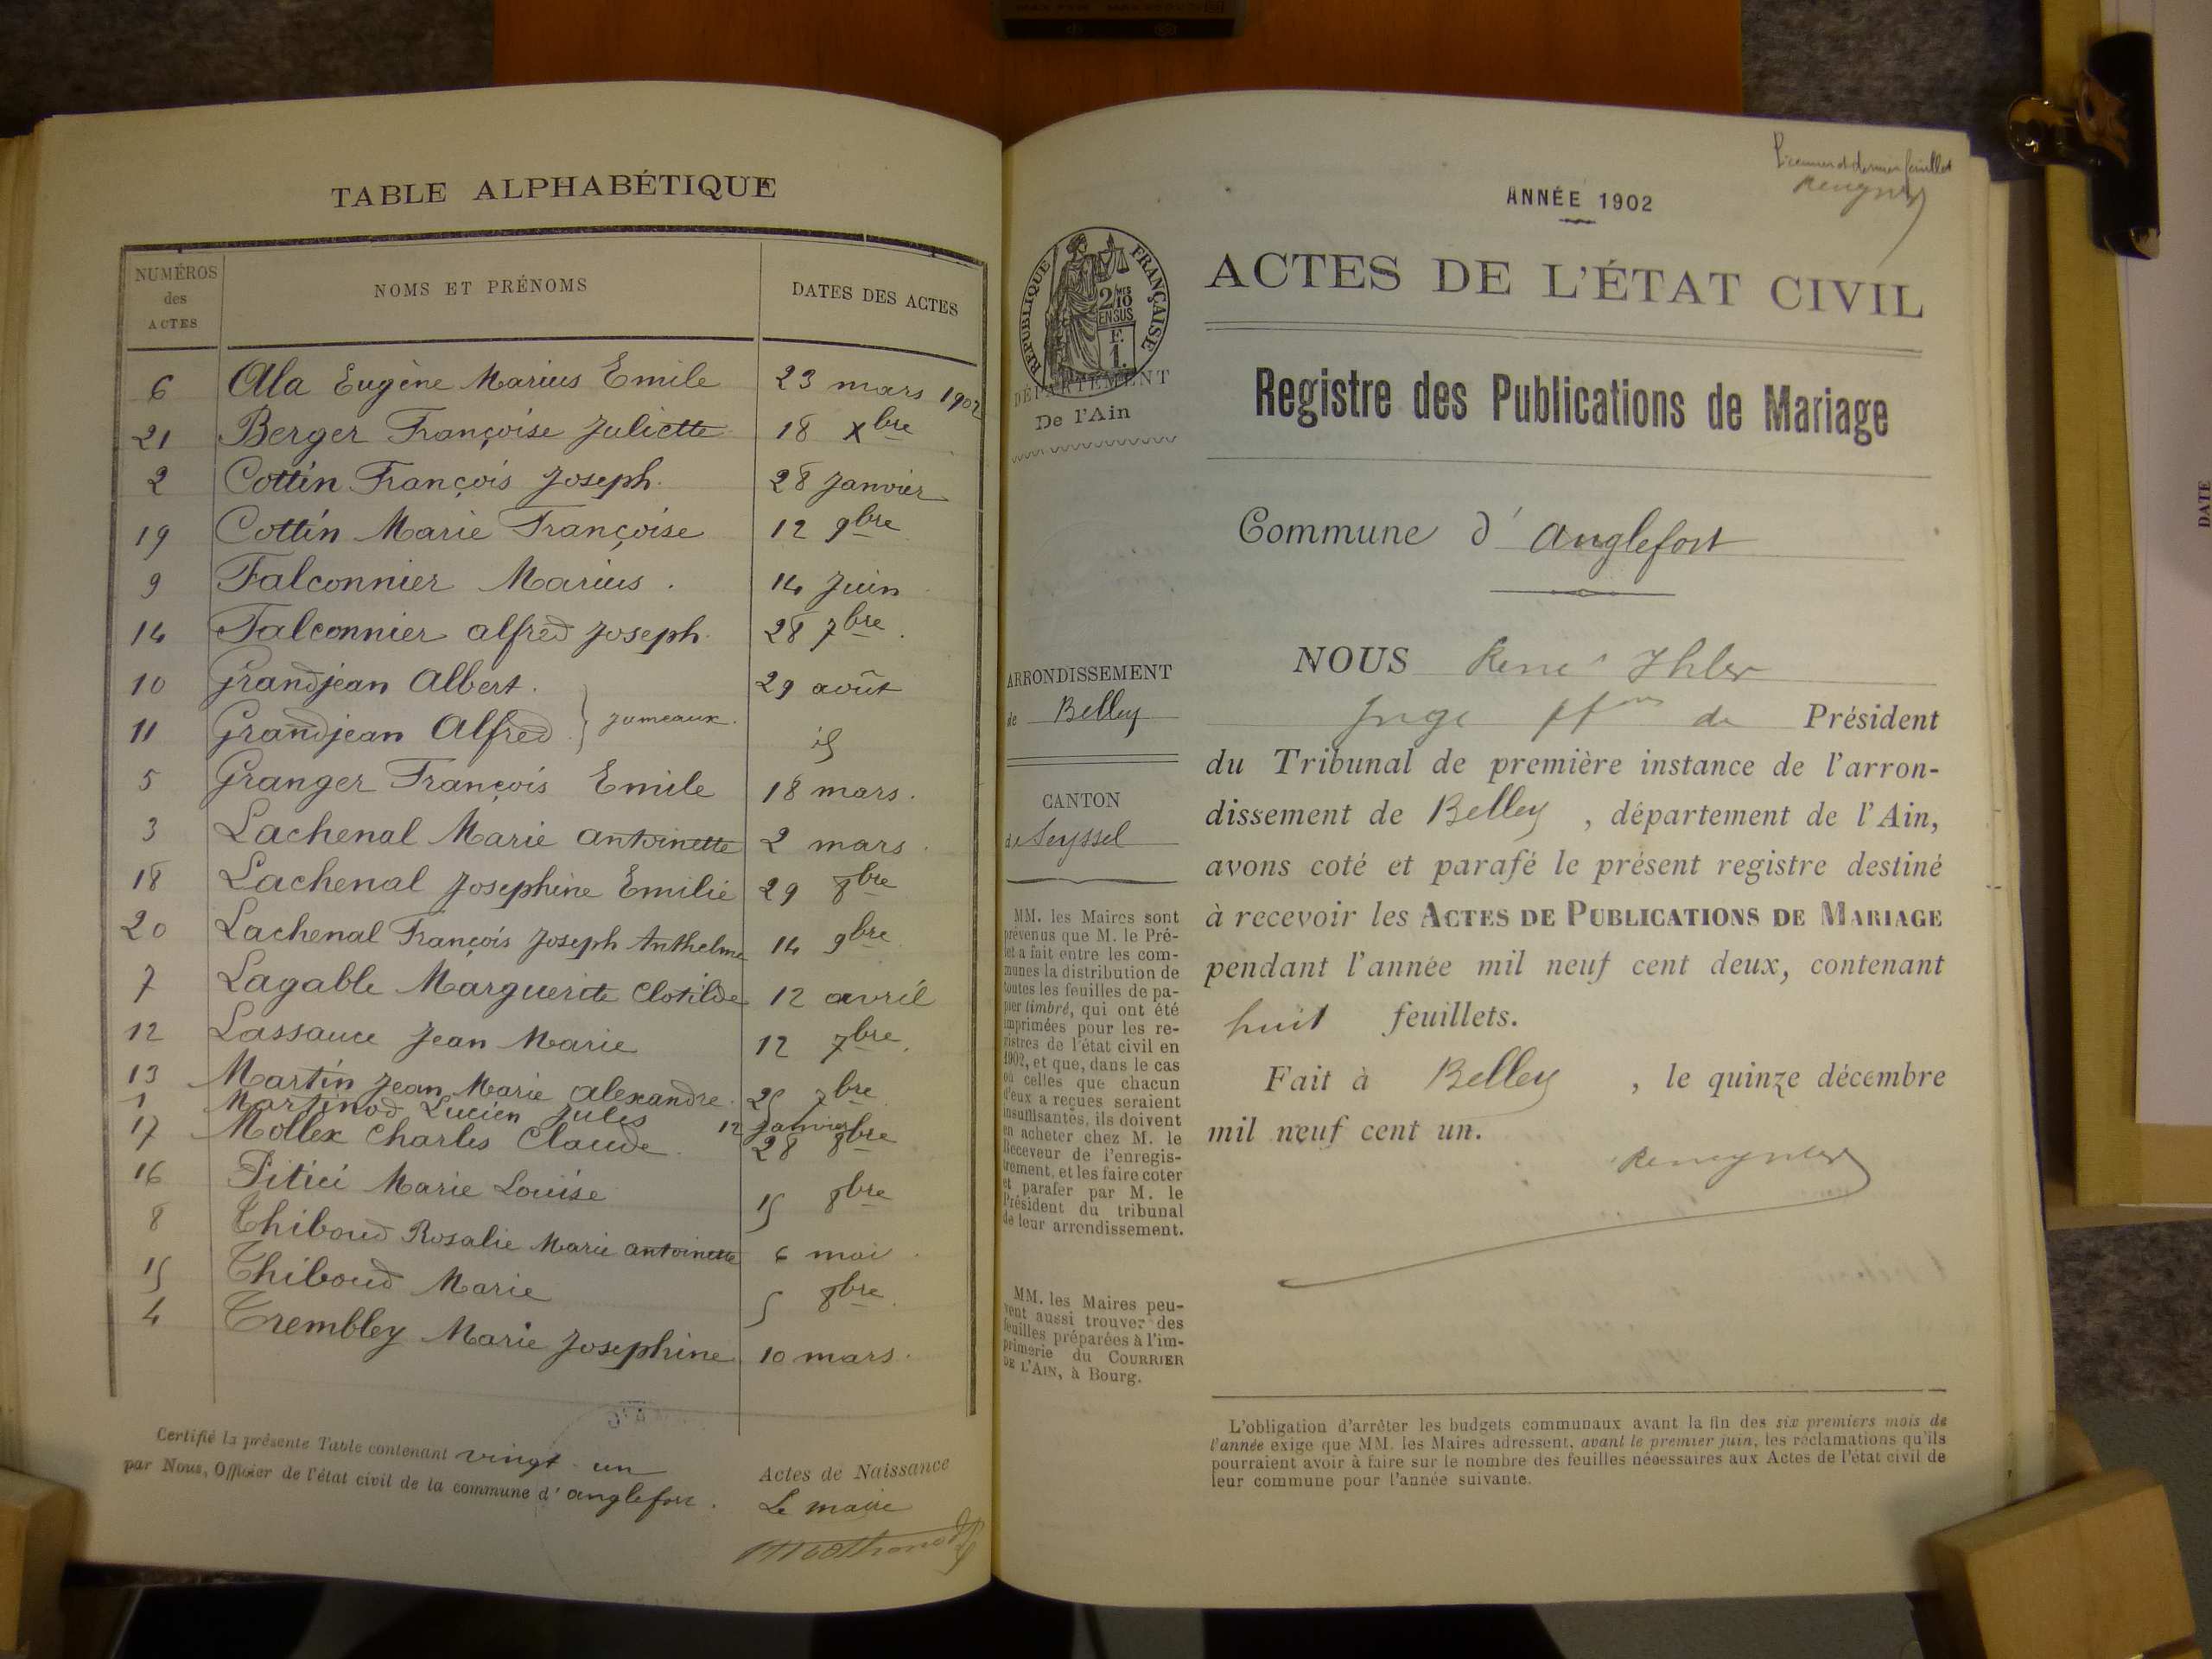 TABLE ALPHABÉTIQUE
NUMÉROS des ACTES NOMS ET PRÉNOMS DATES DES ACTES
6 Ala Eugène Marius Emile 23 mars 1902
21 Berger Françoise Juliette 18 Xbre
2 Cottin François Joseph. 28 Janvier
19 Cottin Marie Françoise 12 9bre
9 Falconnier Marius. 14 Juin
14 Falconnier alfred Joseph. 28 7bre.
10 Grandjean Albert. 29 août
11 Grandjean Alfred. } Jumeaux. id
5 Granger François Emile 18 mars.
3 Lachenal Marie antoinette 2 mars.
18 Lachenal Josephine Emilie 29 8bre
20 Lachenal François Joseph Anthelme 14 9bre
7 Lagable Marguerite Clotilde 12 avril
12 Lassauce Jean Marie 12 7bre.
13 Martin Jean Marie alexandre. 25 7bre
1 Martinod Lucien Jules 12 Janvier
17 Mollex Charles Claude. 28 8bre
16 Pitici Marie Louise 15 8bre
8 Thiboud Rosalie Marie antoinette 6 mai.
15 Thiboud Marie 5 8bre.
4 Trembley Marie Josephine 10 mars.
Certifié la présente Table contenant vingt un Actes de Naissance
par Nous, Officier de l'état civil de la commune d'anglefort.
Le maire
Premier et dernier feuillet
ANNÉE 1902
ACTES DE L'ÉTAT CIVIL
RÉPUBLIQUE FRANÇAISE
2/10 MES
EN SUS
F.
1.
DÉPARTEMENT
De l'Ain
Registre des Publications de Mariage
Commune d'anglefort
ARRONDISSEMENT
de Belley
CANTON
de Seyssel
MM. les Maires sont
prévenus que M. le Pré-
fet a fait entre les com-
munes la distribution de
toutes les feuilles de pa-
pier timbré, qui ont été
imprimées pour les re-
gistres de l'état civil en
1902, et que, dans le cas
où celles que chacun
d'eux a reçues seraient
insuffisantes, ils doivent
en acheter chez M. le
Receveur de l'enregis-
trement, et les faire coter
et parafer par M. le
Président du tribunal
de leur arrondissement.
MM. les Maires peu-
vent aussi trouver des
feuilles préparées à l'im-
primerie du COURRIER
DE L'AIN, à Bourg.
NOUS René Ihler
Juge ffons de Président
du Tribunal de première instance de l'arron-
dissement de Belley, département de l'Ain,
avons coté et parafé le présent registre destiné
à recevoir les ACTES DE PUBLICATIONS DE MARIAGE
pendant l'année mil neuf cent deux, contenant
huit feuillets.
Fait à Belley, le quinze décembre
mil neuf cent un.
L'obligation d'arrêter les budgets communaux avant la fin des six premiers mois de
l'année exige que MM. les Maires adressent, avant le premier juin, les réclamations qu'ils
pourraient avoir à faire sur le nombre des feuilles nécessaires aux Actes de l'état civil de
leur commune pour l'année suivante.
DATE